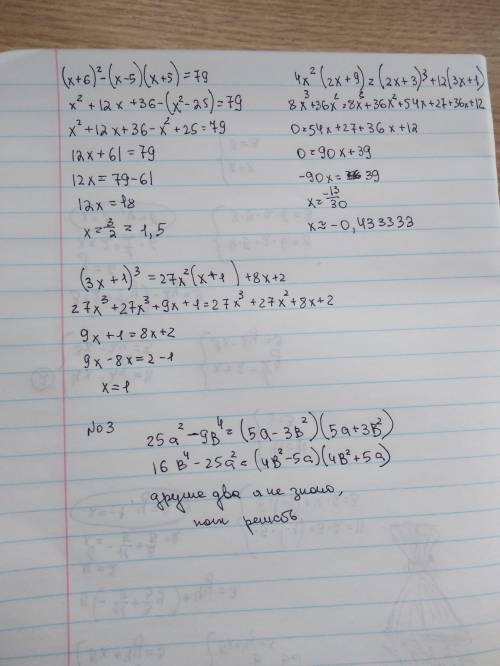 (x+6)² - (x-5)(x+5) = 79
x² + 12x + 36 - (x² - 25) = 79
x² + 12x + 36 - x² + 25 = 79
12x + 61 = 79
12x = 79 - 61
12x = 18
x = 3/2 = 1,5
4x² (2x+9) = (2x+3)³ + 12(3x+1)
8x³ + 36x² = 8x³ + 36x² + 54x + 27 + 36x + 12
0 = 54x + 27 + 36x + 12
0 = 90x + 39
-90x = 39
x = -13/30
x ≈ -0,433333
(3x+1)³ = 27x² (x+1) + 8x + 2
27x³ + 27x³ + 9x + 1 = 27x³ + 27x² + 8x + 2
9x + 1 = 8x + 2
9x - 8x = 2 - 1
x = 1
№3
25a² - 9b⁴ = (5a - 3b²)(5a + 3b²)
16b⁴ - 25a² = (4b² - 5a)(4b² + 5a)
другие два я не знаю,
как решать